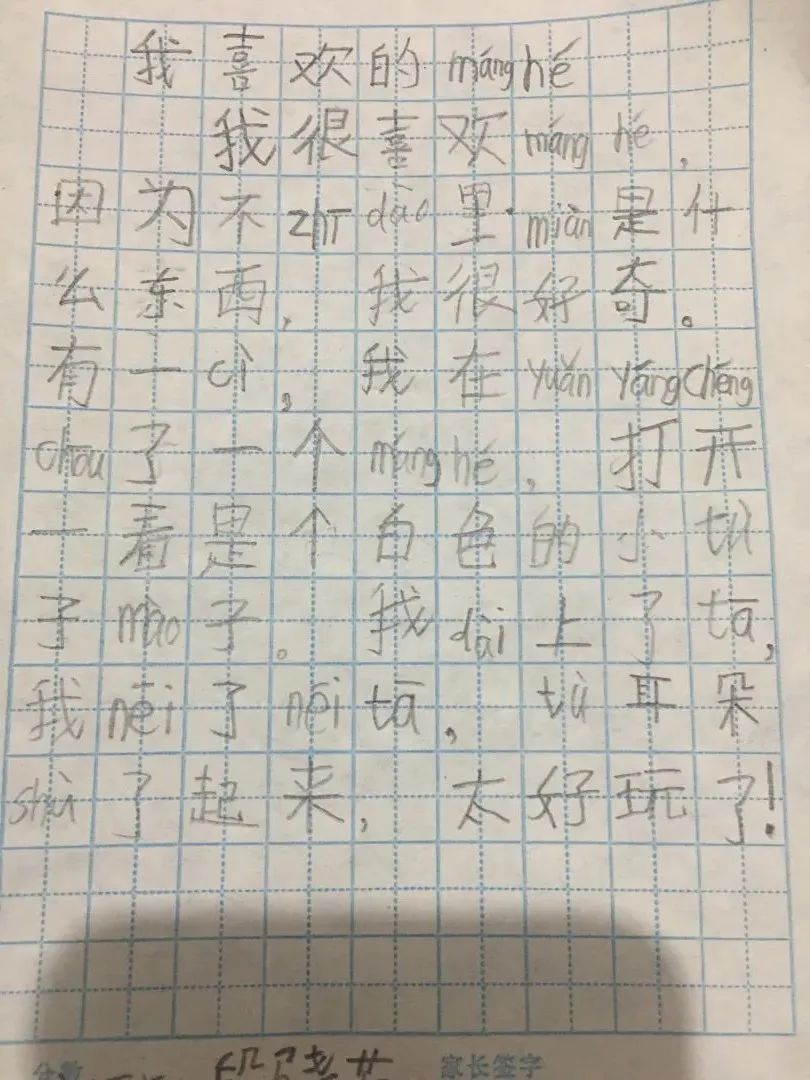 我喜欢的mánghé
我很喜欢máng hé，
因为不zhī dào里miàn是什
么东西，我很好奇。
有一cì，我在yuǎn yáng chéng
chōu了一个máng hé，打开
一看是个白色的小tù
子mào子。我dài上了tā，
我nēi了nēi tā，tù耳朵
shù了起来，太好玩了！
家长签字